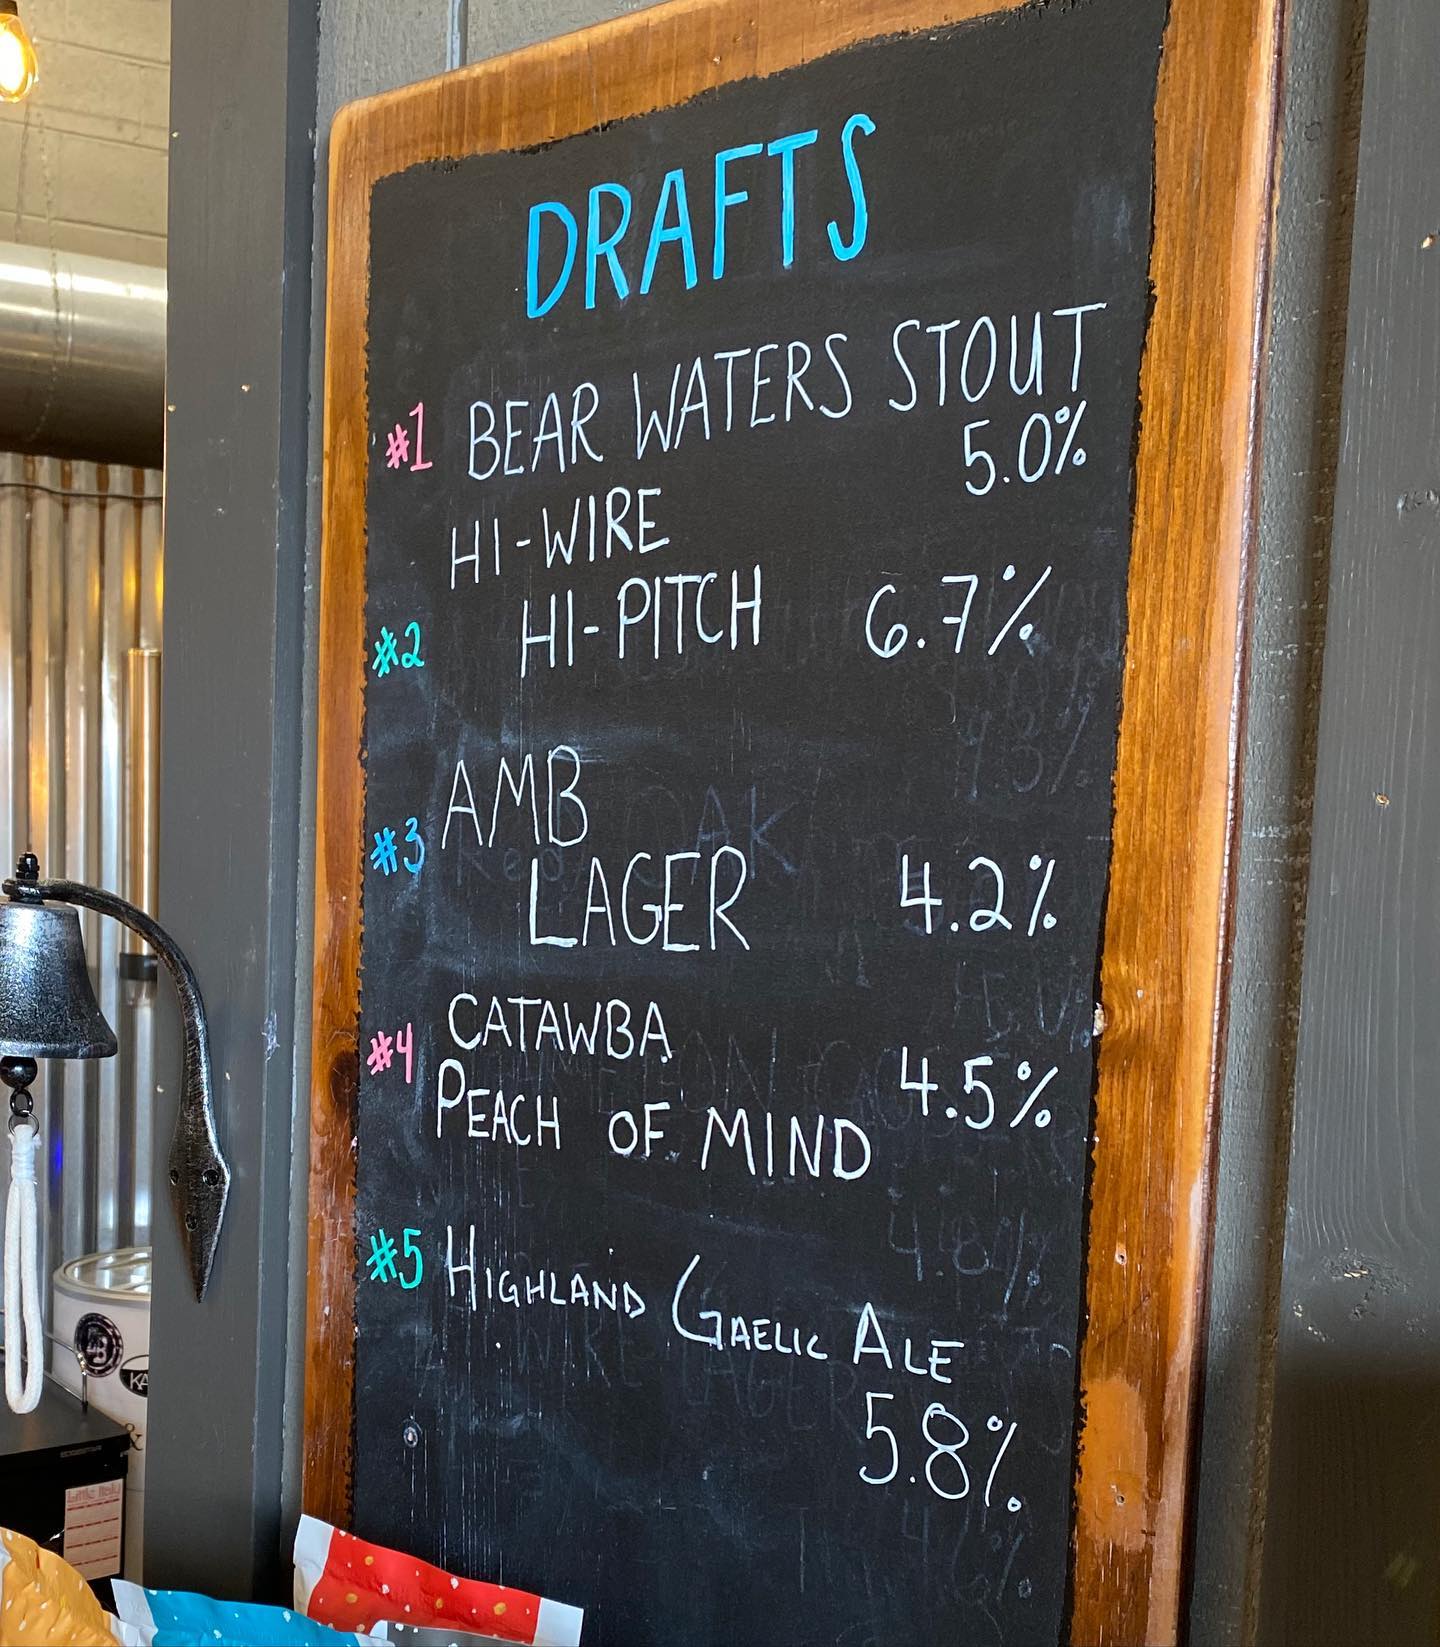 DRAFTS
#1 BEAR WATERS STOUT
5.0%
HI-WIRE
#2 HI-PITCH 6.7%
AMB
#3 LAGER 4.2%
#4 CATAWBA 4.5%
PEACH OF MIND
#5 HIGHLAND GAELIC ALE
5.8%
KA
&